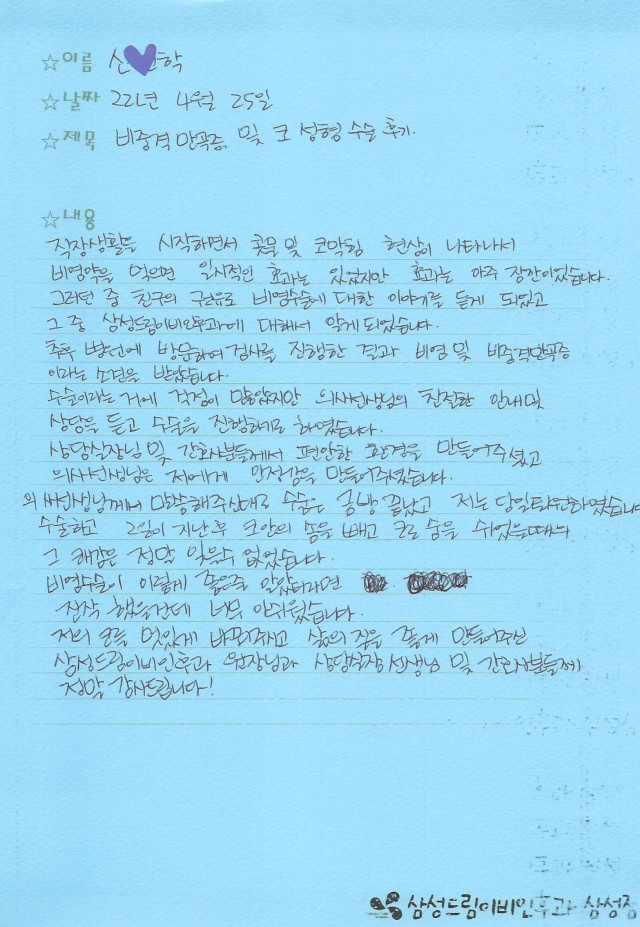 ☆이름 신 학
☆날짜 22년 4월 25일
☆제목 비중격 만곡증, 및 코 성형 수술 후기.
☆내용
직장생활을 시작하면서 콧물 및 코막힘 현상이 나타나서
비염약을 먹으면 일시적인 효과는 있었지만 효과는 아주 잠깐이었습니다.
그러던 중 친구의 권유로 비염수술에 대한 이야기를 듣게 되었고
그 중 삼성드림이비인후과에 대해서 알게되었습니다.
추후 병원에 방문하여 검사를 진행한 결과 비염 및 비중격만곡증
이라는 소견을 받았습니다.
수술이라는 거에 걱정이 많았지만 의사선생님의 친절한 안내 및
상담을 듣고 수술을 진행하기로 하였습니다.
상담실장님 및 간호사분들께서 편안한 환경을 만들어주셨고
의사선생님은 저에게 안정감을 만들어주셨습니다.
의사선생님께서 말씀해주신대로 수술은 금방 끝났고 저는 당일퇴원하였습니다
수술하고 2일이 지난후 코안의 솜을 빼고 코로 숨을 쉬었을때의
그 쾌감은 정말 잊을수 없었습니다.
비염수술이 이렇게 좋은줄 알았더라면
진작 했을건데 너무 아쉬웠습니다.
저의 코를 멋있게 바꿔주고 삶의 질을 좋게 만들어주신
삼성드림이비인후과 원장님과 상담실장선생님 및 간호사분들께
정말 감사드립니다!
삼성드림이비인후과 삼성중